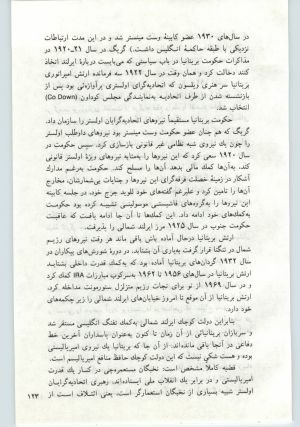 در سال‌های ۱۹۳۰ عضو کابینهٔ وست مینستر شد و در این مدت ارتباطات
نزدیکی با طبقه حاکمهٔ انگلیس داشت.) گریگ در سال ۲۱ـ۱۹۲۰ در
مذاکرات حکومت بریتانیا در باب سیاستی که می‌بایست دربارهٔ ایرلند اتخاذ
کنند دخالت کرد و همان وقت در سال ۱۹۲۲ سه فرمانده ارتش امپراتوری
بریتانیا سر هنری ویلسون که اتحادیه‌گرای اولستری پرآوازه‌ئی بود پس از
بازنشسته شدن از طرف اتحادیه به‌نمایندگی مجلس کودائون (Go Down)
انتخاب شد.
حکومت بریتانیا مستقیماً نیروهای اتحادیه‌گرایان اولستر را سازمان داد.
گریگ که هم چنان عضو حکومت وست مینستر بود نیروهای داوطلب اولستر
را چون یك نیروی شبه نظامی غیر قانونی بازسازی کرد. سپس حکومت در
سال ۱۹۲۰ سعی کرد که این نیروها را به‌مثابه نیروهای ویژهٔ اولستر قانونی
کند. به‌آن‌ها کمك مالی بدهد آنها را مسلح کند. حکومت به‌رغم مدارك
آشکار در زمینهٔ خصلت فرقه‌گرای این نیروها و جنایات بی‌شمارشان، مخارج
آن‌ها را تامین کرد و علیرغم گفته‌های خود للوید جرج خود، در جلسه کابینه
این نیروها را به‌گروه‌های فاشیستی موسولینی تشبیه کرده بود حکومت
به‌کمك‌های خود ادامه داد. این کمك‌ها تا آن جا ادامه یافت که عاقبت
حکومت جنوب در سال ۱۹۲۵ مرز ایرلند شمالی را پذیرفت.
ارتش بریتانیا درحال آماده باش باقی ماند هر وقت نیروهای رژیم
شمال در تنگنا قرار گرفت به‌یاری آن بشتابند. در دورهٔ شورش‌های بیکاران در
سال ۱۹۳۲ گردان‌های بریتانیا آماده بود که به‌کمك قدرت داخلی بشتابد
ارتش بریتانیا در سال‌های ۱۹۵۶ تا ۱۹۶۲ به‌سرکوب مبارزات IRA کمك کرد
و در سال ۱۹۶۹ از نو برای نجات رژیم متزلزل ستورمونت مداخله کرد.
ارتش بریتانیا از آن موقع تا امروز خیابان‌های ایرلند شمالی را زیر چکمه‌های
خود دارد.
بنابراین دولت کوچك ایرلند شمالی به‌کمك تفنگ انگلیسی مستقر شد
و سربازان بریتانیائی از آن زمان تا کنون به‌عنوان پاسداران آخرین خط
دفاعی در آنجا باقی مانده‌اند: از آن جا که بریتانیا یك نیروی امپریالیستی
بوده و هست شکی نیست که این دولت کوچك حافظ منافع امپریالیسم است.
قضیه کاملاً مشخص است: نخبگان مستعمره‌چی در کنار یك قدرت
امپریالیستی و در برابر یك انقلاب ملی ایستاده‌اند. رهبری اتحادیه‌گرایان
اولستر شبیه بسیاری از نخبگان استعمارگر است، یعنی ائتلاف است از
۱۲۳